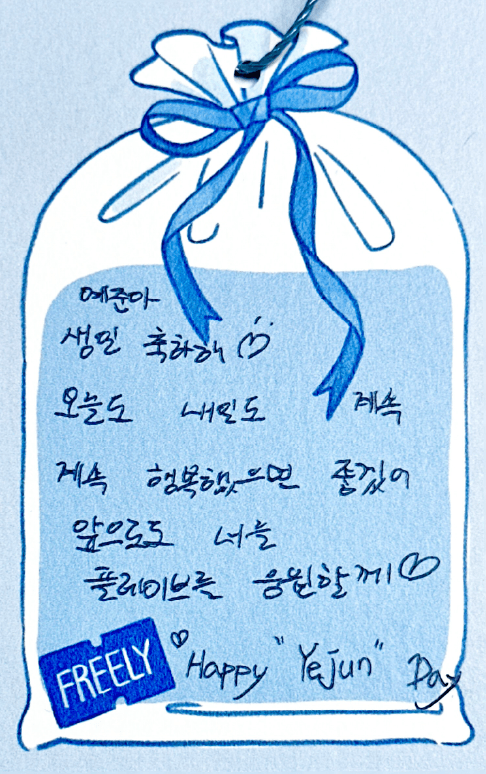 예준아
생일 축하해 ♡
오늘도 내일도 계속
계속 행복했으면 좋겠어
앞으로도 너를
플레이브를 응원할께 ♡
FREELY
♡ Happy "Yejun" Day